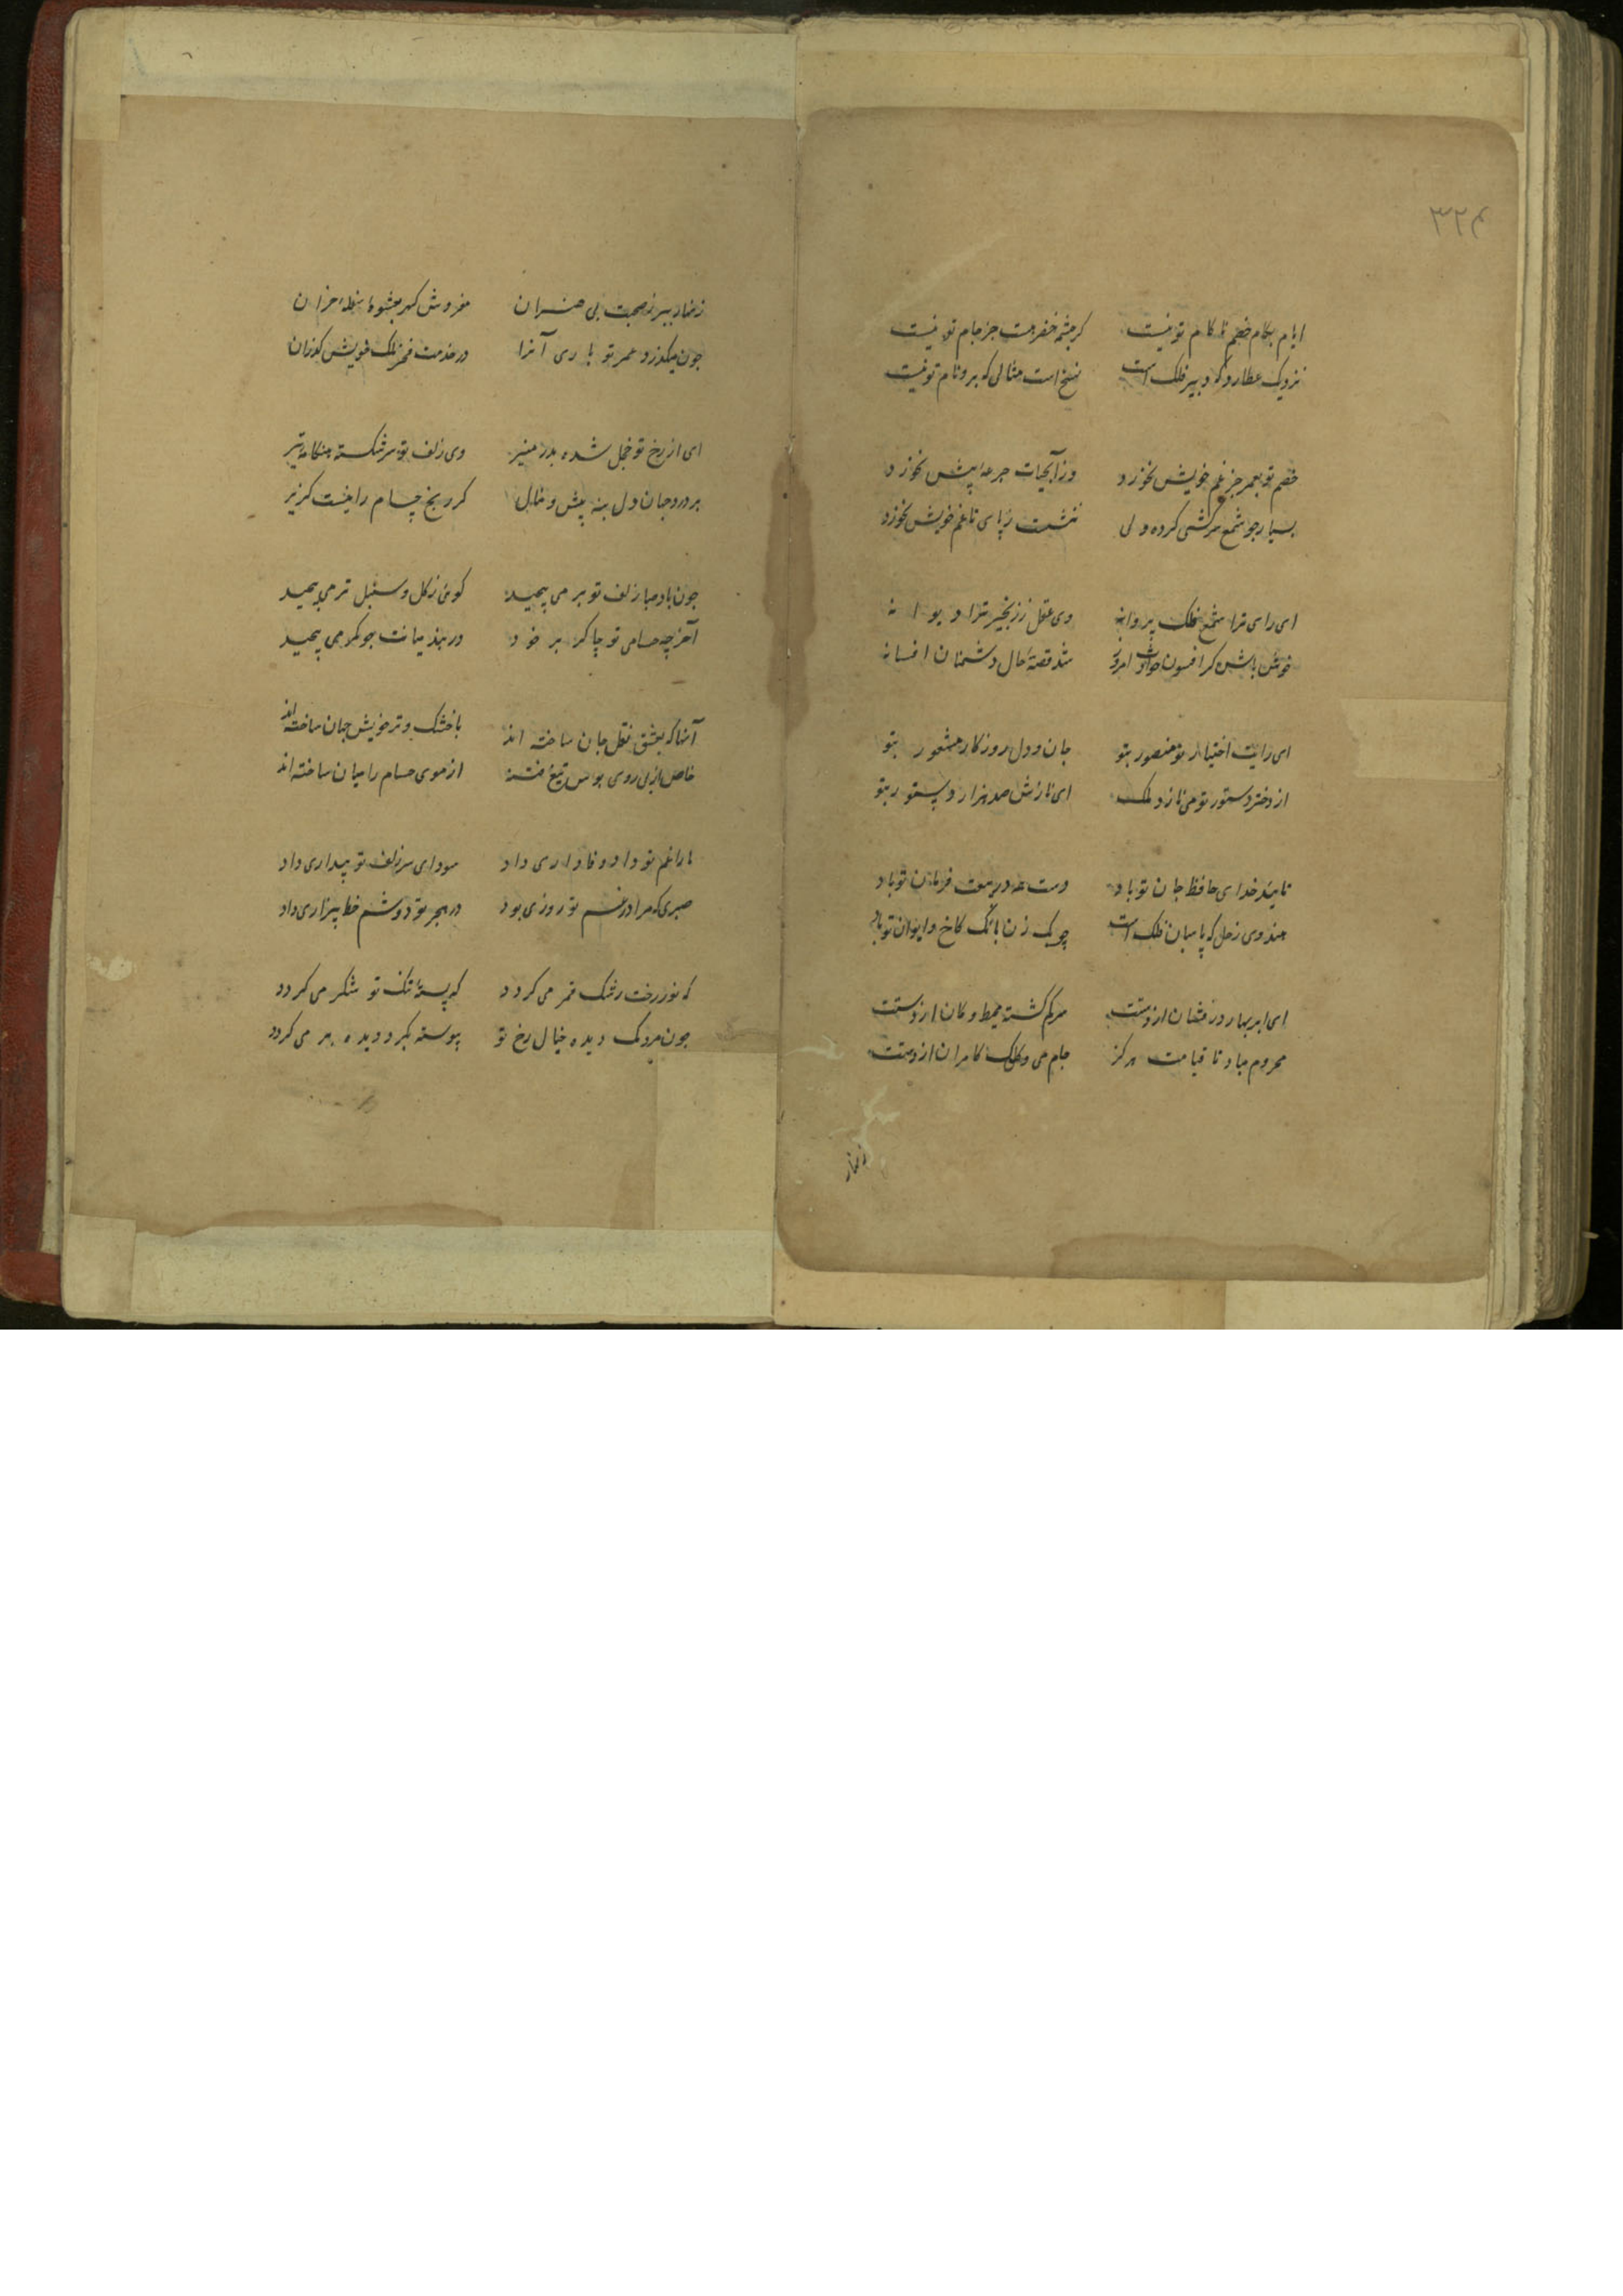 ۳۲۴
ایام بکام خصم ناکام تو نیست کر چشمه خضر هست جز جام تو نیست
نزدیک عطارد که دبیر فلک است نسخ است مثالی که برو نام تو نیست
خصم تو بعمر جز غم خویش نخورد وز آبحیات جرعه پیش نخورد
بسیار جو شمع سرکشی کرده ولی ننشست ز پای تا غم خویش نخورد
ای رای ترا شمع فلک پروانه وی عقل ز زنجیر تو دیوانه
خوش باش کز افسون حوادث امروز شد قصه حال دشمنان افسانه
ای رایت اختیار تو منصور بتو جان و دل روزکار مسرور بتو
از دختر دستور تو می نازد ملک ای نازش صد هزار دستور بتو
تایید خدای حافظ جان تو باد دست همه در بیعت فرمان تو باد
هندوی زحل که پاسبان فلک است چوبک زن بانک کاخ و ایوان تو باد
ای ابر بهار درفشان از دستت سرکم کشته محیط و کان از دستت
محروم مباد تا قیامت هرکز جام می و کلک کامران از دستت
زنهار
زنهار ببر ز صحبت بی هنران مفروش کهر بعشوه خران
جون میکذرد عمر تو باری آنرا در خدمت فخر ملک خویش کذران
ای از رخ تو خجل شده بدر منیر وی زلف تو سر شکسته هنکامه تیر
بر درد جان و دل بنه پیش کز رنج حسام را نیست کزیر
جون باد صبا زلف تو بر می پیچید کوئی ز کل و سنبل تر می پیچید
آخر چه حسامی تو جاکر بر خود در بند میانت جو کمر می پیچید
آنها که بعشق نقل جان ساخته اند با خشک و تر خویش جهان ساخته اند
خاص از پی روی تیغ فتنه از موی حسام را میان ساخته اند
ما را غم تو داد وفاداری داد سودای سر زلف تو بیداری داد
صبری که مرا در غم تو روزی بود در هجر تو دوشم خط بیزاری داد
که نور رخت رشک قمر می کردد که پسته تنک تو شکر می کردد
جون مردمک دیده خیال رخ تو پیوسته بکرد دیده بر می کردد